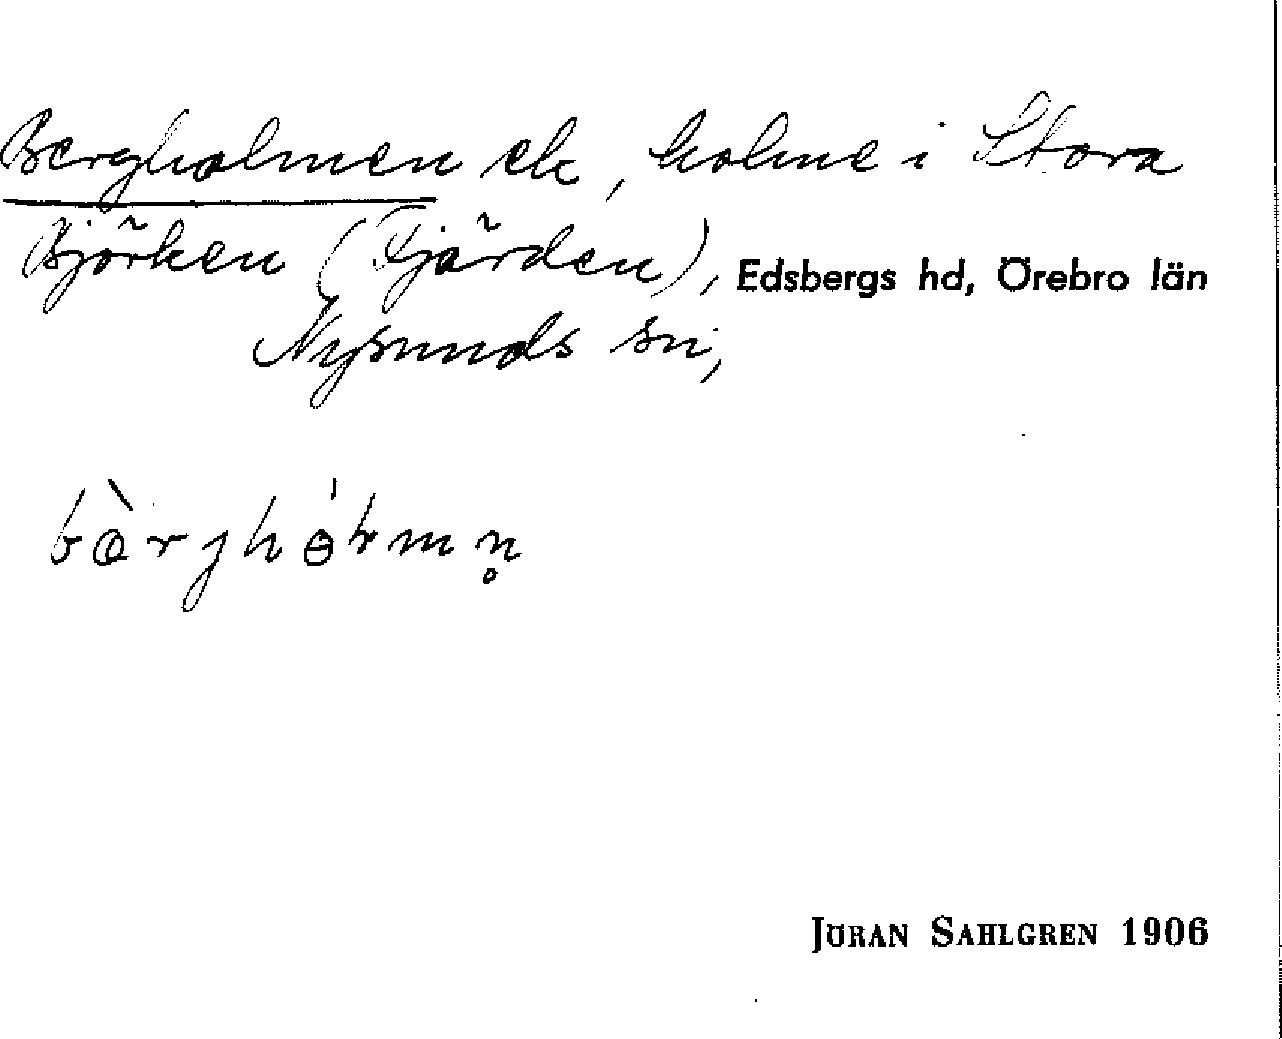 Bergholmen ek, holme i Stora
Björken (Fjärden), Edsbergs hd, Örebro län
Nysunds sn,
JÖRAN SAHLGREN 1906